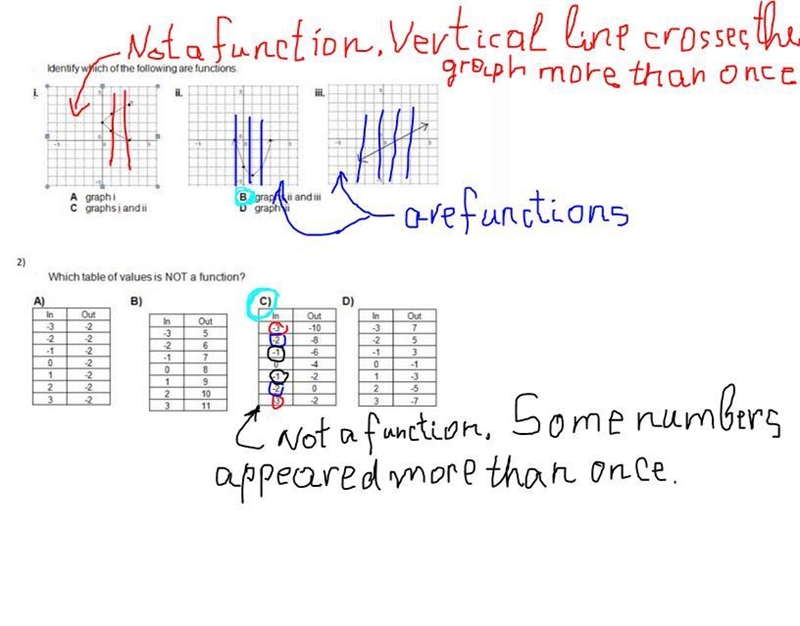 Not a function. Vertical line crosses the
graph more than once
Identify which of the following are functions.
i. ii. iii.
A graph i B graphs ii and iii
C graphs i and ii D graph
are functions
2)
Which table of values is NOT a function?
A) B) C) D)
In Out In Out In Out In Out
-3 -2 -3 5 -3 -10 -3 7
-2 -2 -2 6 -2 -8 -2 5
-1 -2 -1 7 -1 -6 -1 3
0 -2 0 8 0 -4 0 -1
1 -2 1 9 -1 -2 1 -3
2 -2 2 10 -2 0 2 -5
3 -2 3 11 -3 -2 3 -7
Not a function. Some numbers
appeared more than once.